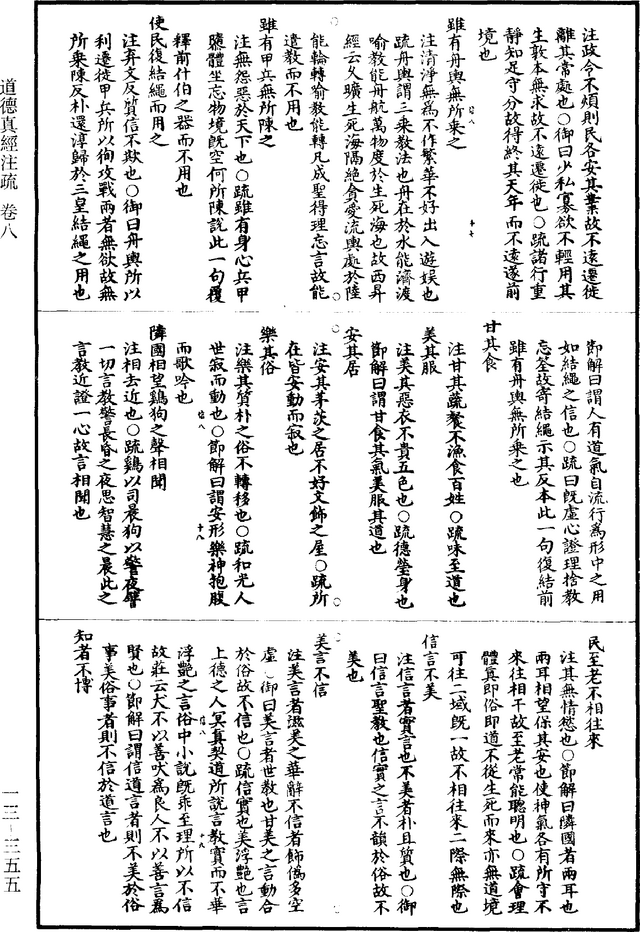 注政令不煩則民各安其業故不遠遷徙
離其常處也○御曰少私寡欲不輕用其
生敦本無求故不遠遷徙也○疏諸行重
静知足守分故得終其天年而不遠遂前
境也
雖有舟輿無所乘之
注清淨無爲不作繁華不好出入遊娛也
疏舟輿謂三乘教法也舟在於水能濟渡
喻教能舟航萬物度於生死海也故西昇
經云久曠生死海隔絶貪愛流輿處於陸
能輪轉喻教能轉凡成聖得理忘言故能
遺教而不用也
雖有甲兵無所陳之
注無怨惡於天下也○疏雖有身心兵甲
聽體坐忘物境既空何所陳說此一句覆
釋前什伯之器而不用也
使民復結繩而用之
注弃文反質信不欺也○御曰舟輿所以
利遷徙甲兵所以徇攻戰兩者無欲故無
所乘陳反朴還淳歸於三皇結繩之用也
節解曰謂人有道氣自流行爲形中之用
如結繩之信也○疏曰既虛心證理捨教
忘筌故寄結繩示其反本此一句復結前
雖有舟輿無所乘之也
甘其食
注甘其蔬餐不漁食百姓○疏味至道也
美其服
注美其惡衣不貴五色也○疏德瑩身也
節解曰謂甘食其氣美服其道也
安其居
注安其茅茨之居不好文飾之屋○疏所
在皆安動而寂也
樂其俗
注樂其質朴之俗不轉移也○疏和光人
世寂而動也○節解曰謂安形樂神抱腹
而歌吟也
隣國相望鷄狗之聲相聞
注相去近也○疏鷄以司晨狗以警夜譬
一切言教警長昏之夜思智慧之晨此之
言教近證一心故言相聞也
民至老不相往來
注其無情慾也○節解曰隣國者兩耳也
兩耳相望保其安也使神氣各有所守不
來往相干故至老常能聰明也○疏會理
體真即俗即道不從生死而來亦無道境
可往二域既一故不相往來二際無際也
信言不美
注信言者實言也不美者朴且質也○御
曰信言聖教也信實之言不韻於俗故不
美也
美言不信
注美言者滋美之華辭不信者飾僞多空
虛○御曰美言者世教也甘美之言動合
於俗故不信也○疏信實也美浮艷也言
上德之人冥真契道所說言教實而不華
浮艷之言俗中小說既乖至理所以不信
故莊云犬不以善吠爲良人不以善言爲
賢也○節解曰謂信道言者則不美於俗
事美俗事者則不信於道言也
知者不博
道德真經注疏 卷八
一三-三五五